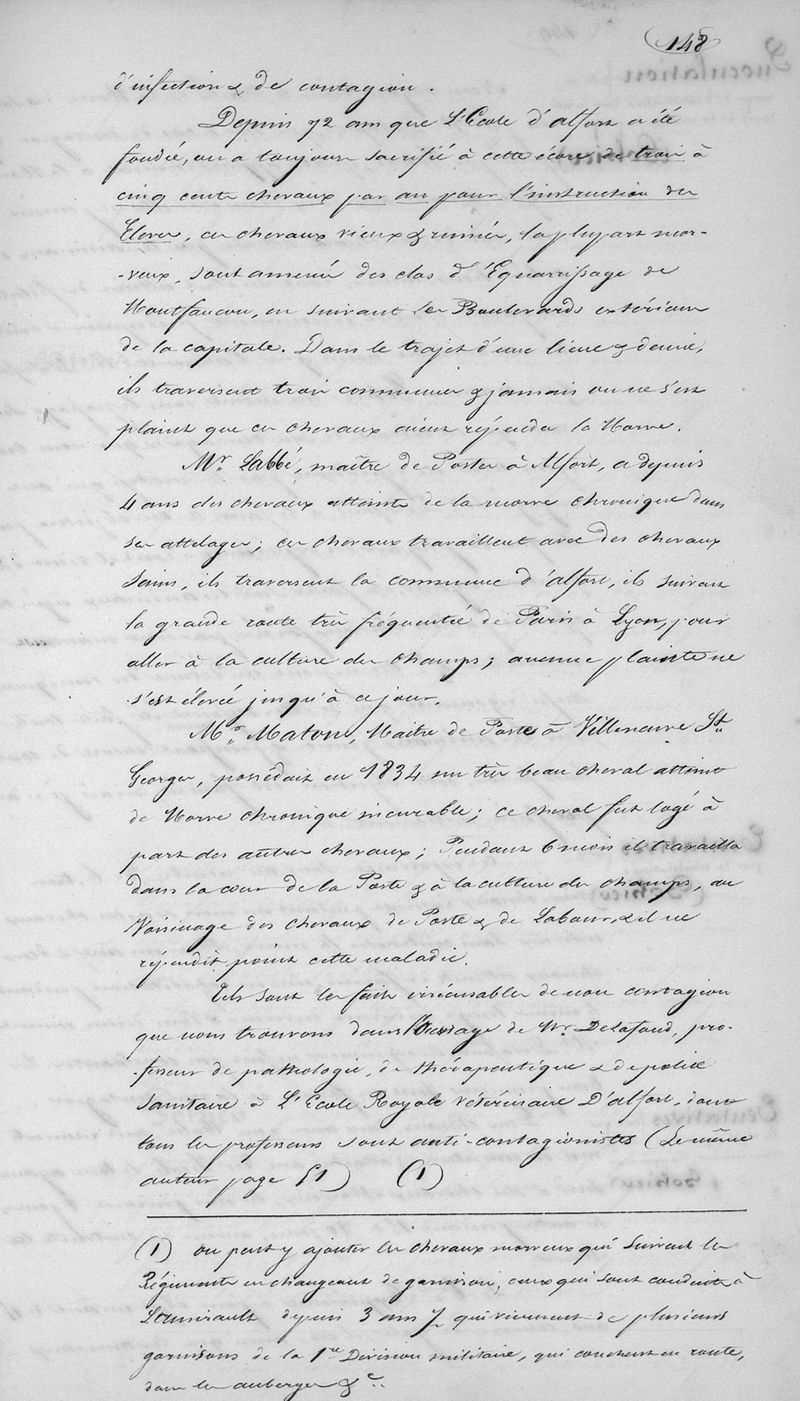 148
d'infection & de contagion.
Depuis 72 ans que L'Ecole d'alfort a été
fondée, on a toujours sacrifié à cette école de trois à
cinq cents chevaux par an pour l'instruction des
Eleves, ces chevaux vieux & ruinés, la plupart mor-
-veux, sont amenés des clos d'Equarrissage de
Montfaucon, en suivant les Boulevards extérieurs
de la capitale. Dans le trajet d'une lieue & demie,
ils traversent trois communes & jamais on ne s'est
plaint que ces chevaux aient répandu la Morve.
Mr. Labbé, maître de Postes à Alfort, a depuis
4 ans des chevaux atteints de la morve chronique dans
ses attelages; ces chevaux travaillent avec des chevaux
sains, ils traversent la commune d'alfort, ils suivent
la grande route très fréquentée de Paris à Lyon, pour
aller à la culture des champs; aucune plainte ne
s'est élevée jusqu'à ce jour.
Mr. Maton, Maître de Poste à Villeneuve St.
Georges, possédait en 1834 un très beau cheval atteint
de Morve chronique incurable; ce cheval fut logé à
part des autres chevaux; Pendant 6 mois il travailla
dans la cour de la Poste & à la culture des champs, au
Voisinage des chevaux de Poste & de Labour, & il ne
répandit point cette maladie.
Tels sont les faits irrécusables de non contagion
que nous trouvons dans l'ouvrage de Mr. Delafond, pro-
-fesseur de pathologie, de thérapeutique & de police
sanitaire à L'Ecole Royale vétérinaire D'alfort, dont
tous les professeurs sont anti-contagionistes (Le même
auteur page 51) (1)
(1) on peut y ajouter les chevaux morveux qui suivent les
Régiments en changeant de garnison, ceux qui sont conduits à
Lamirault depuis 3 ans ½ qui viennent de plusieurs
garnisons de la 1re Division militaire, qui couchent en route,
dans les auberges &c..